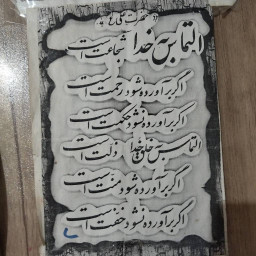 حضرت علی (ع)
التماس به خدا شجاعت است
اگر برآورده شود رحمت است
اگر برآورده نشود حکمت است
التماس به خلق خدا ذلت است
اگر برآورده شود منت است
اگر برآورده نشود خفت است